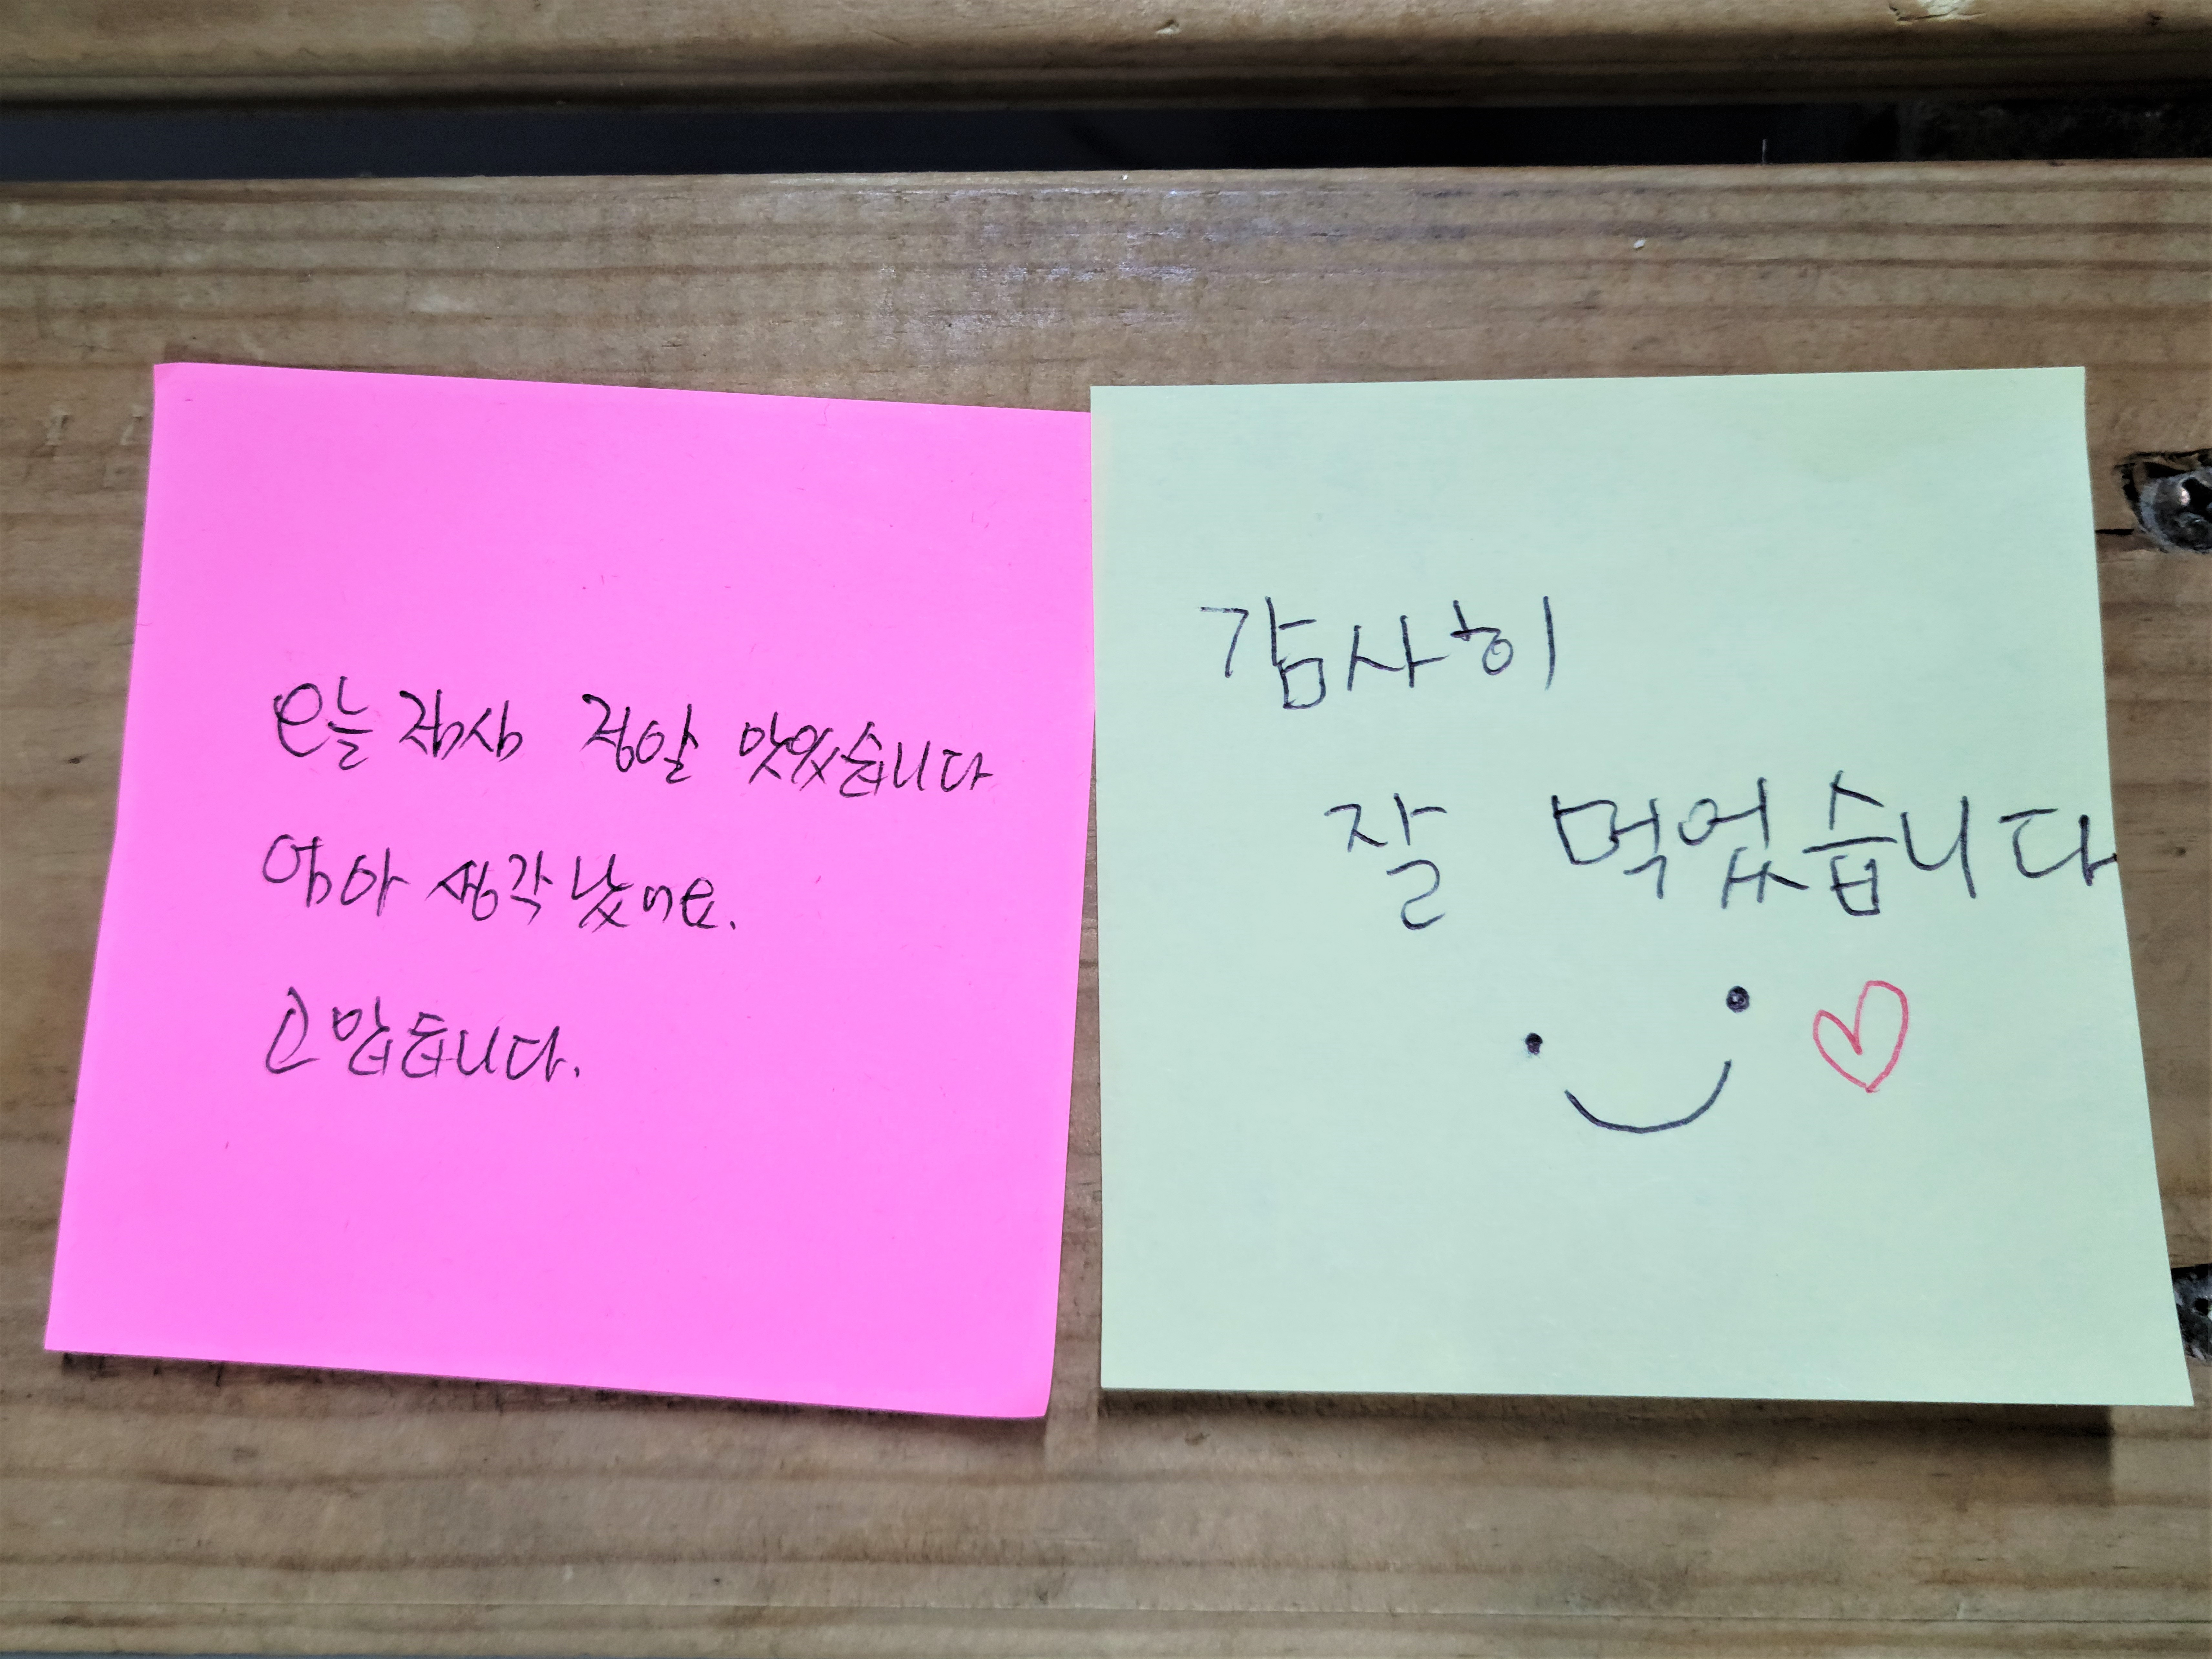 오늘 점심 정말 맛있습니다
엄마 생각 났어요.
고맙습니다.
감사히
잘 먹었습니다